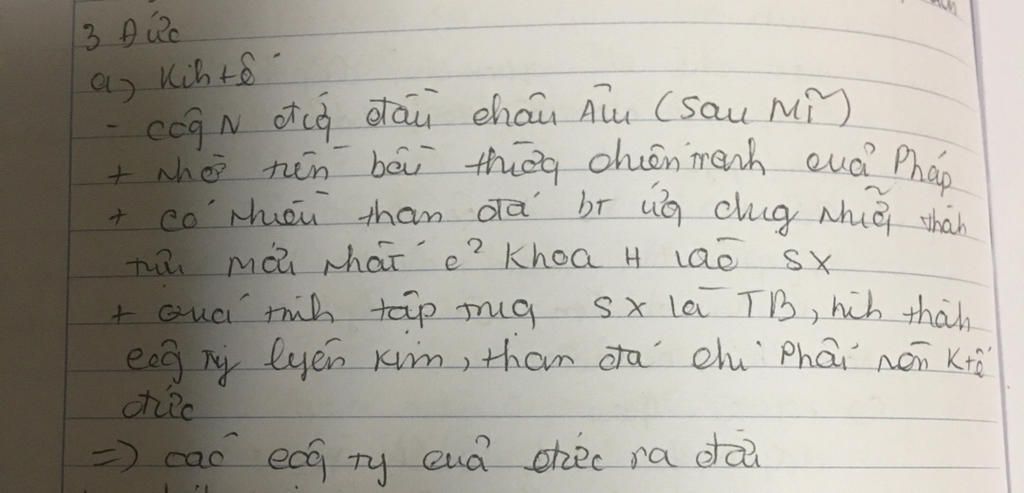 3 Đức
a) Kih tế
- Côg N đứg đầu châu Âu (sau Mĩ)
+ Nhờ tiền bồi thườg chiến tranh của Pháp
+ có nhiều than đá bt ứg dụg nhữg thàh
tựu mới nhất c² khoa H vào SX
+ Quá trình tập trug SX là TB, hìh thàh
côg ty luyện kim, than đá chi phối nền Ktế
đức
=> các côg ty của đức ra đời